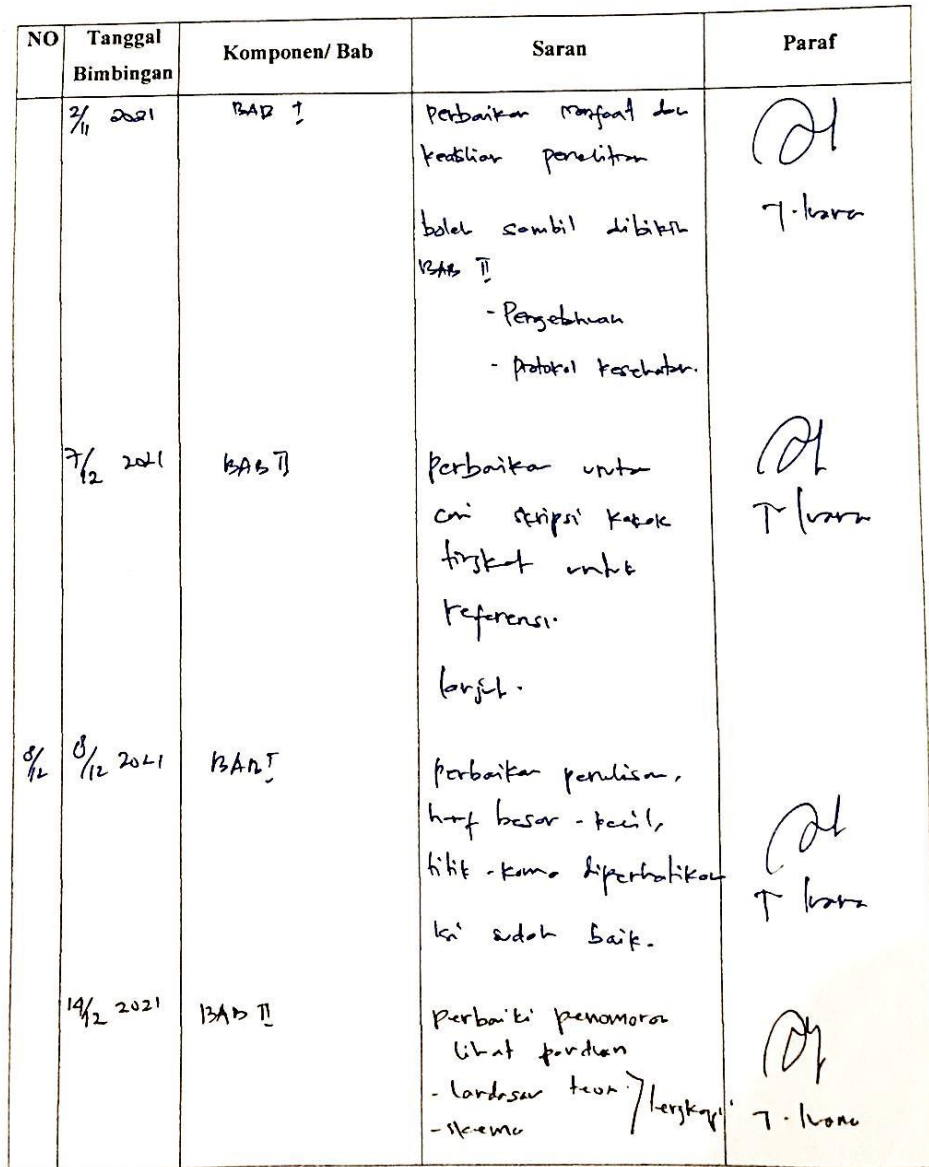 NO Tanggal Bimbingan Komponen/ Bab Saran Paraf
2/11 2021 BAB I perbaikan manfaat dan
keaslian penelitian
boleh sambil dibikin
BAB II
- Pengetahuan
- protokol kesehatan.
7/12 2021 BAB II perbaikan
cari skripsi kakak
tingkat untuk
referensi.
lanjut.
8/12 8/12 2021 BAB I perbaikan penulisan,
huruf besar - kecil,
titik - koma diperhatikan
isi sudah baik.
14/12 2021 BAB II perbaiki penomoran
lihat panduan
- landasan teori
- skema lengkapi